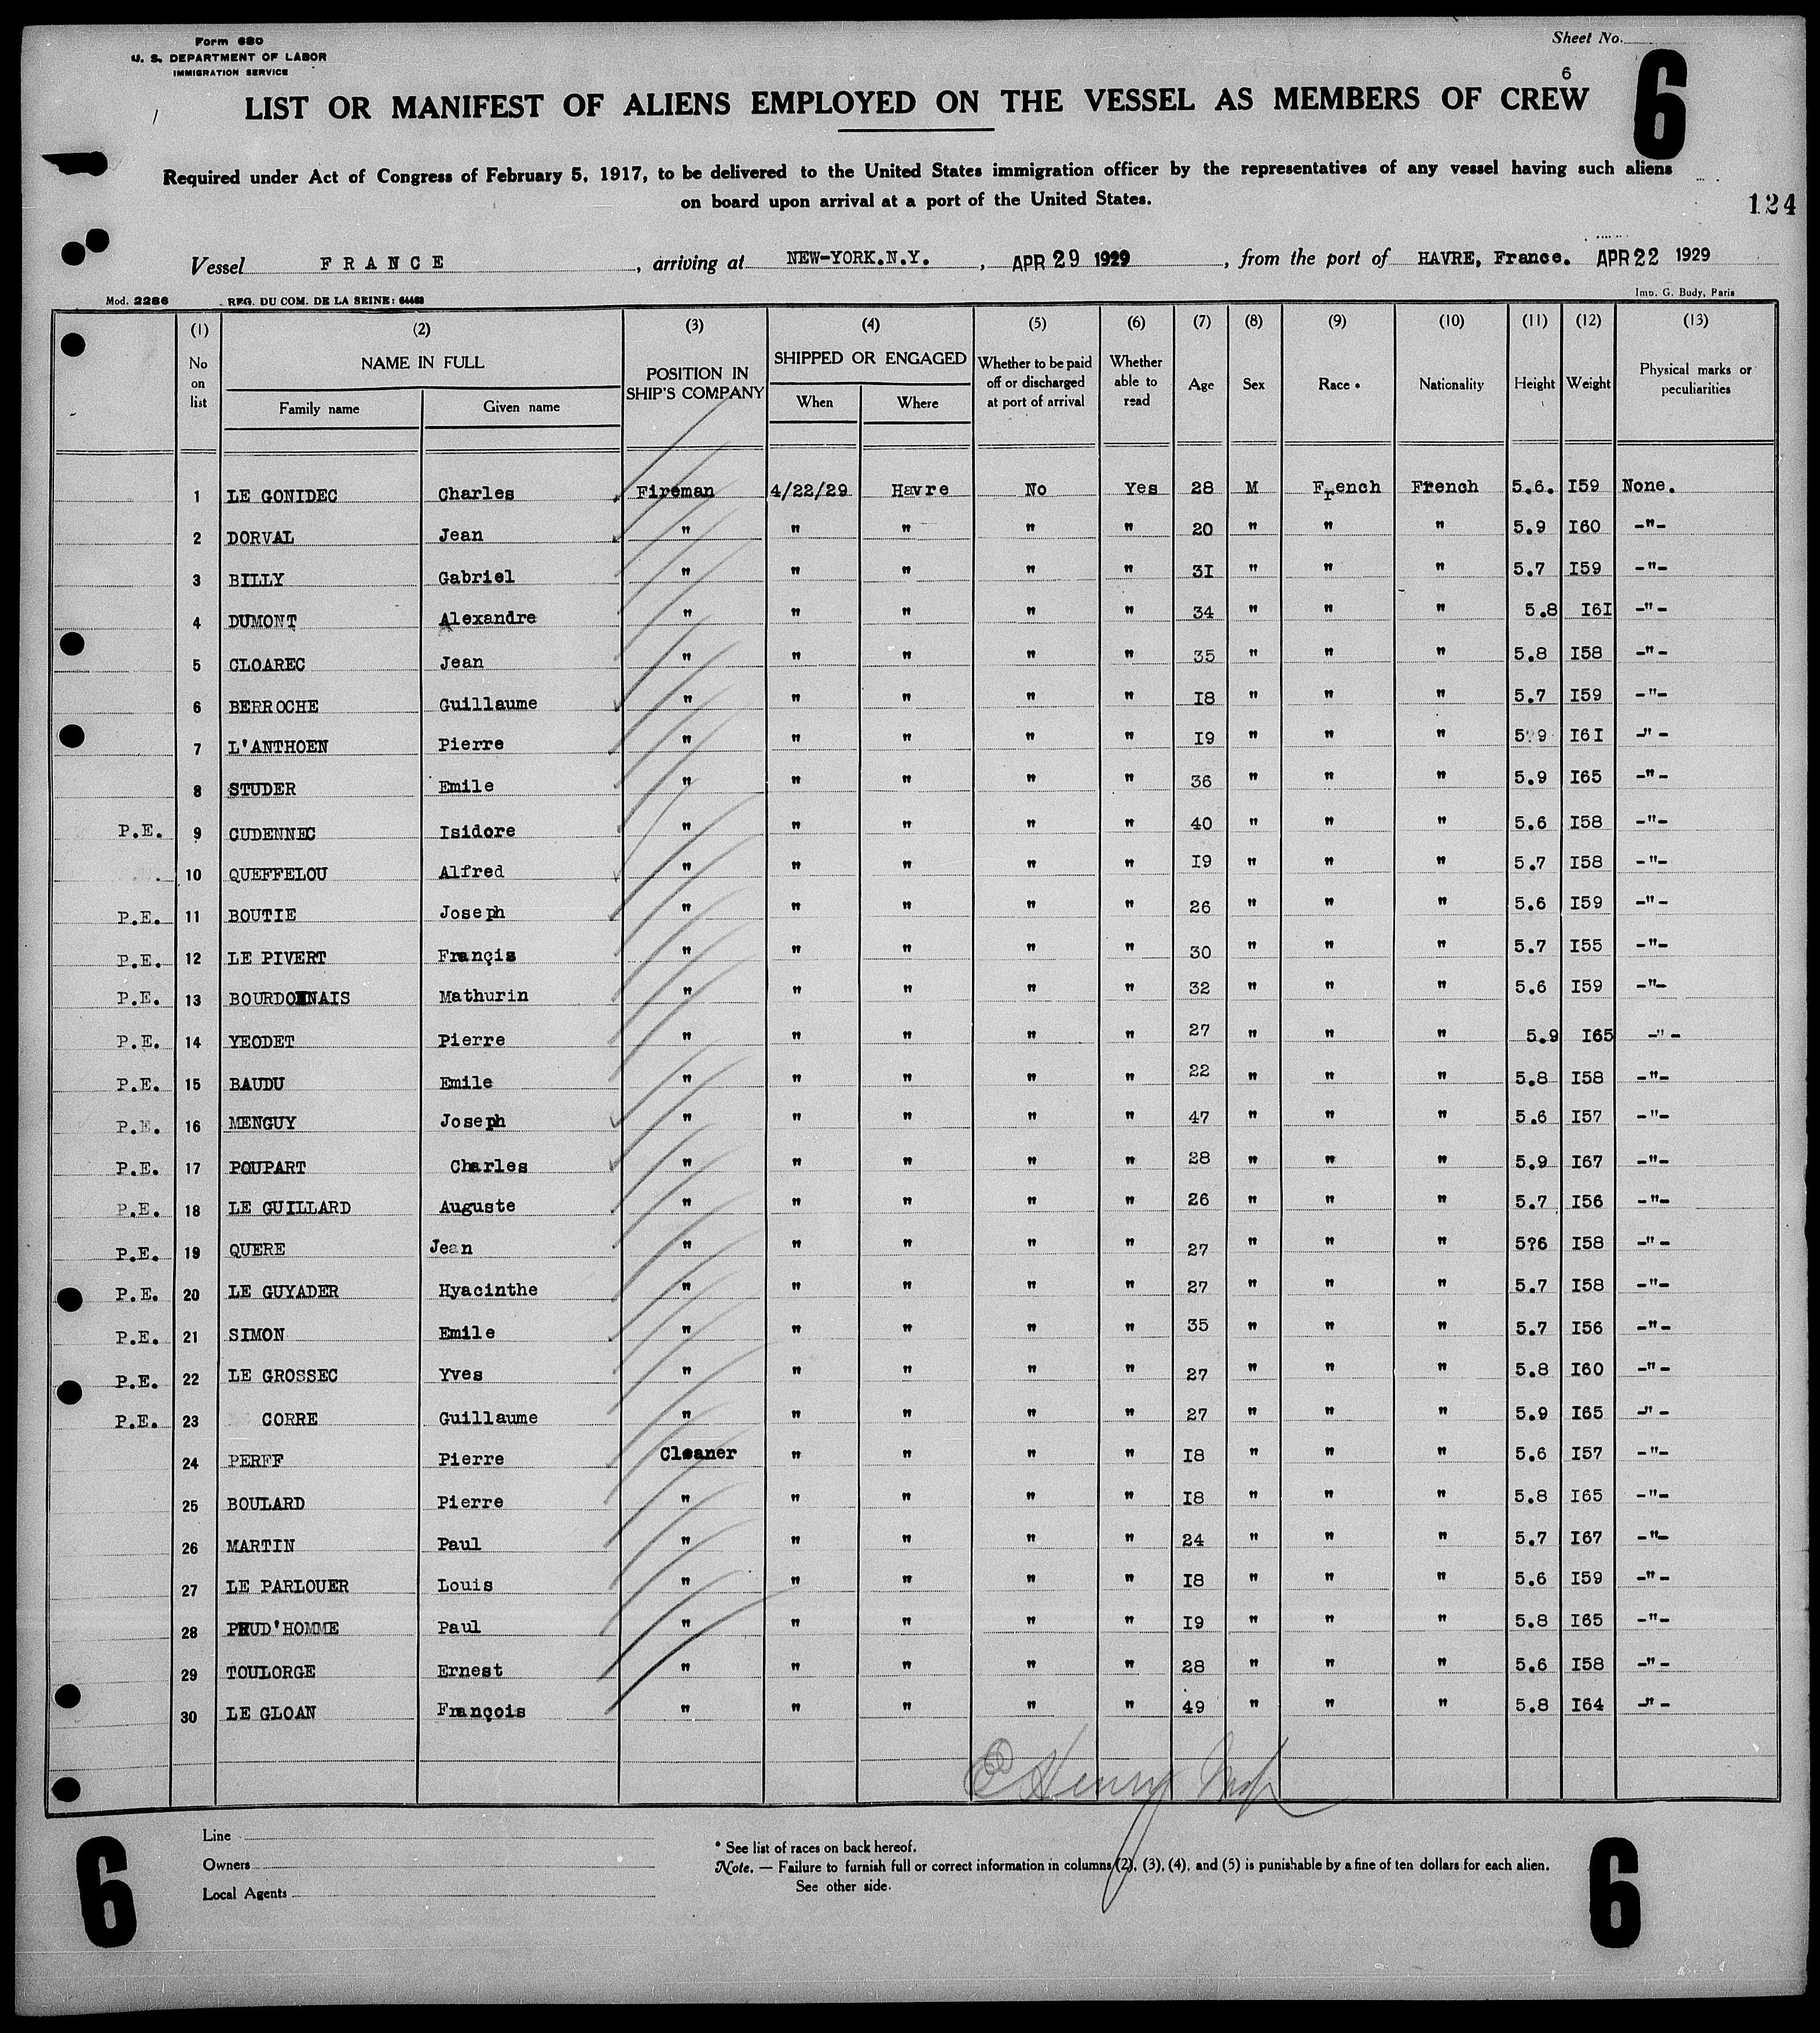 Form 680
U. S. DEPARTMENT OF LABOR
IMMIGRATION SERVICE
Sheet No.
6
6
LIST OR MANIFEST OF ALIENS EMPLOYED ON THE VESSEL AS MEMBERS OF CREW
Required under Act of Congress of February 5, 1917, to be delivered to the United States immigration officer by the representatives of any vessel having such aliens
on board upon arrival at a port of the United States.
124
Vessel FRANCE, arriving at NEW-YORK.N.Y., APR 29 1929, from the port of HAVRE, France. APR 22 1929
Mod. 2286 REG. DU COM. DE LA SEINE: Imp. G. Budy, Paris
(1) (2) (3) (4) (5) (6) (7) (8) (9) (10) (11) (12) (13)
No on list NAME IN FULL POSITION IN SHIP'S COMPANY SHIPPED OR ENGAGED Whether to be paid off or discharged at port of arrival Whether able to read Age Sex Race * Nationality Height Weight Physical marks or peculiarities
Family name Given name When Where
1 LE GONIDEC Charles Fireman 4/22/29 Havre No Yes 28 M French French 5.6. I59 None.
2 DORVAL Jean " " " " " 20 " " " 5.9 I60 -"-
3 BILLY Gabriel " " " " " 3I " " " 5.7 I59 -"-
4 DUMONT Alexandre " " " " " 34 " " " 5.8 I6I -"-
5 CLOAREC Jean " " " " " 35 " " " 5.8 I58 -"-
6 BERROCHE Guillaume " " " " " I8 " " " 5.7 I59 -"-
7 L'ANTHOEN Pierre " " " " " I9 " " " 5?9 I6I -"-
8 STUDER Emile " " " " " 36 " " " 5.9 I65 -"-
P.E. 9 CUDENNEC Isidore " " " " " 40 " " " 5.6 I58 -"-
10 QUEFFELOU Alfred " " " " " I9 " " " 5.7 I58 -"-
P.E. 11 BOUTIE Joseph " " " " " 26 " " " 5.6 I59 -"-
P.E. 12 LE PIVERT Françis " " " " " 30 " " " 5.7 I55 -"-
P.E. 13 BOURDONNAIS Mathurin " " " " " 32 " " " 5.6 I59 -"-
P.E. 14 YEODET Pierre " " " " " 27 " " " 5.9 I65 -"-
P.E. 15 BAUDU Emile " " " " " 22 " " " 5.8 I58 -"-
P.E. 16 MENGUY Joseph " " " " " 47 " " " 5.6 I57 -"-
P.E. 17 POUPART Charles " " " " " 28 " " " 5.9 I67 -"-
P.E. 18 LE GUILLARD Auguste " " " " " 26 " " " 5.7 I56 -"-
P.E. 19 QUERE Jean " " " " " 27 " " " 5?6 I58 -"-
P.E. 20 LE GUYADER Hyacinthe " " " " " 27 " " " 5.7 I58 -"-
P.E. 21 SIMON Emile " " " " " 35 " " " 5.7 I56 -"-
P.E. 22 LE GROSSEC Yves " " " " " 27 " " " 5.8 I60 -"-
P.E. 23 CORRE Guillaume " " " " " 27 " " " 5.9 I65 -"-
24 PERFF Pierre Cleaner " " " " I8 " " " 5.6 I57 -"-
25 BOULARD Pierre " " " " " I8 " " " 5.8 I65 -"-
26 MARTIN Paul " " " " " 24 " " " 5.7 I67 -"-
27 LE PARLOUER Louis " " " " " I8 " " " 5.6 I59 -"-
28 PRUD'HOMME Paul " " " " " I9 " " " 5.8 I65 -"-
29 TOULORGE Ernest " " " " " 28 " " " 5.6 I58 -"-
30 LE GLOAN François " " " " " 49 " " " 5.8 I64 -"-
Henry
Line
Owners
Local Agents
* See list of races on back hereof.
Note. — Failure to furnish full or correct information in columns (2), (3), (4), and (5) is punishable by a fine of ten dollars for each alien.
See other side.
6
6